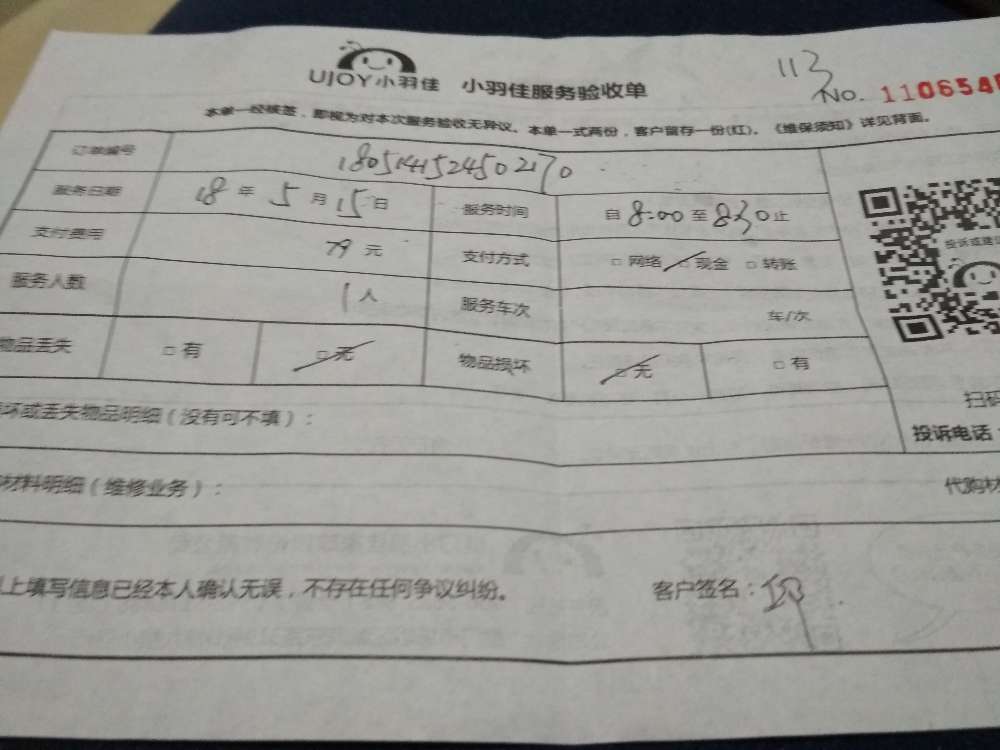 UJOY小羽佳 小羽佳服务验收单 113
No. 110654
本单一经核签，即视为对本次服务验收无异议。本单一式两份，客户留存一份(红)。《维保须知》详见背面。
订单编号 1805141524502170
服务日期 18 年 5 月 15 日 服务时间 自 8:00 至 830 止
支付费用 79 元 支付方式 □ 网络 □ 现金 □ 转账
服务人数 1 人 服务车次 车/次
物品丢失 □ 有 □ 无 物品损坏 □ 无 □ 有
坏或丢失物品明细（没有可不填）：
材料明细（维修业务）： 代购材
上填写信息已经本人确认无误，不存在任何争议纠纷。 客户签名：
投诉或建议
扫码
投诉电话：